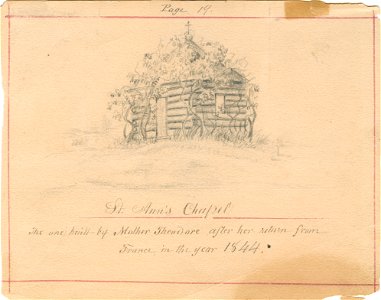 Page 19.
St. Ann's Chapel
The one built by Mother Theodore after her return from
France in the year 1844.